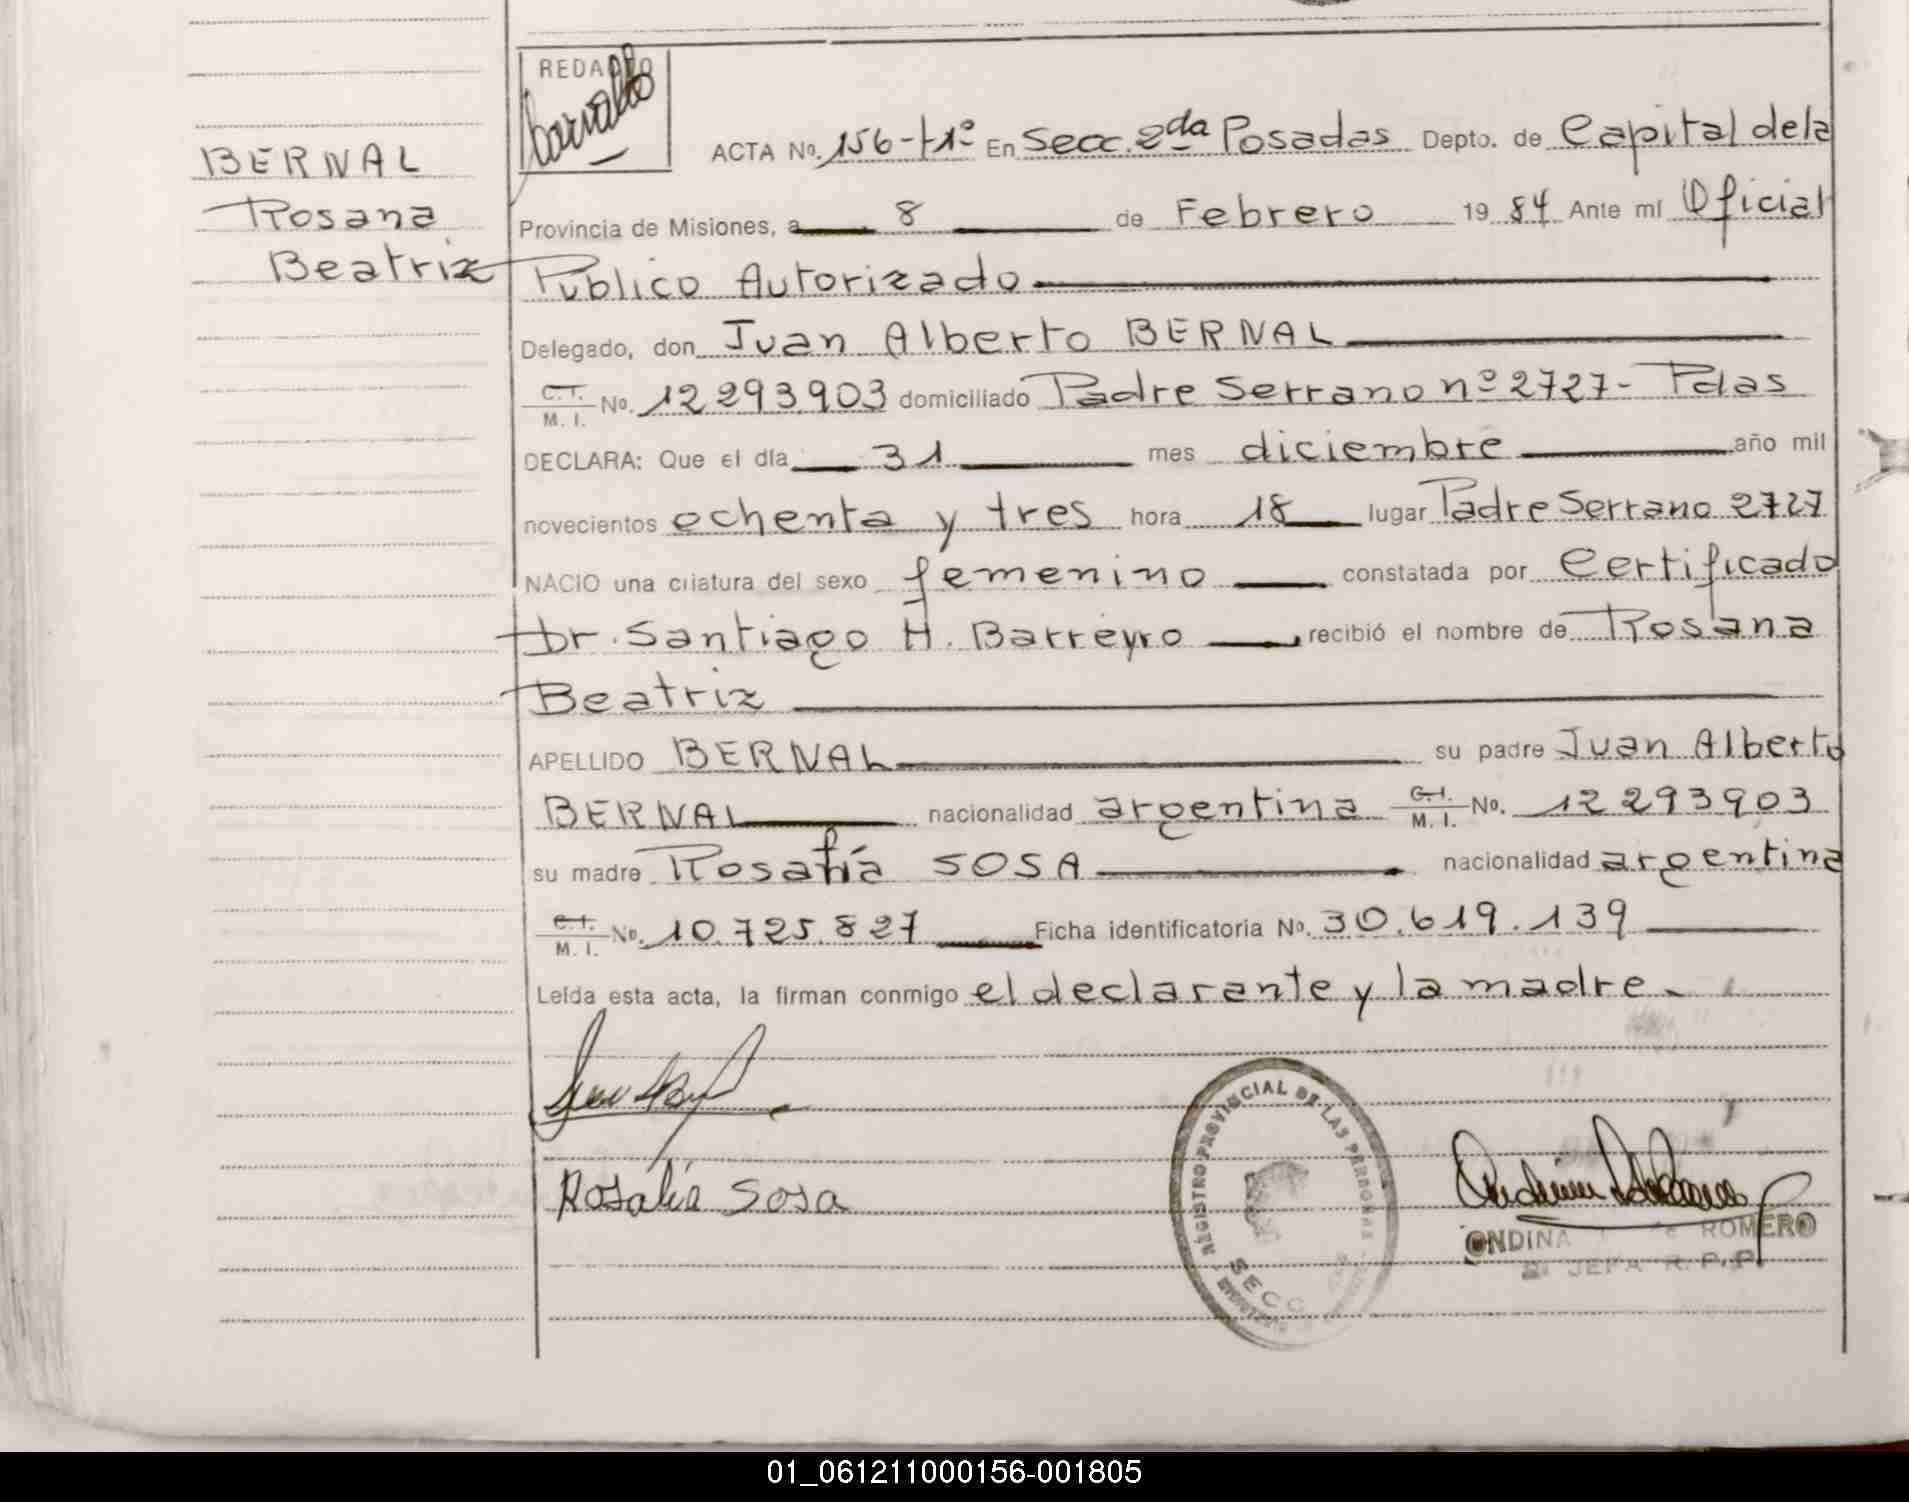 REDACTO
Carvallo
BERNAL
Rosana
Beatriz
ACTA No. 156-t1º En Secc. 2da Posadas Depto. de Capital de la
Provincia de Misiones, a 8 de Febrero 1984 Ante mí Oficial
Público Autorizado
Delegado, don Juan Alberto BERNAL
C.I. M. I. No. 12293903 domiciliado Padre Serrano nº 2727- Pdas
DECLARA: Que el día 31 mes diciembre año mil
novecientos ochenta y tres hora 18 lugar Padre Serrano 2727
NACIO una criatura del sexo femenino constatada por Certificado
Dr. Santiago H. Barreyro recibió el nombre de Rosana
Beatriz
APELLIDO BERNAL su padre Juan Alberto
BERNAL nacionalidad argentina C.I. M. I. No. 12293903
su madre Rosalía SOSA nacionalidad argentina
C.I. M. I. No. 10.725.827 Ficha identificatoria No. 30.619.139
Leída esta acta, la firman conmigo el declarante y la madre.-
Rosalía Sosa
REGISTRO PROVINCIAL DE LAS PERSONAS
SECC
ONDINA de ROMERO
JEFA R.P.P.
01_061211000156-001805